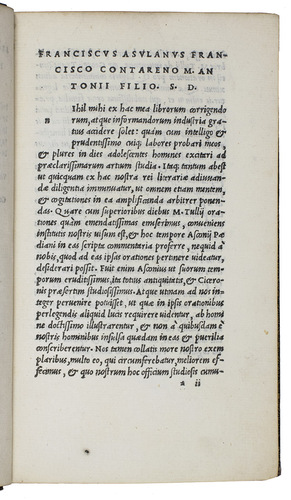 FRANCISCVS ASVLANVS FRAN-
CISCO CONTARENO M. AN
TONII FILIO. S. D.
n Ihil mihi ex hac mea librorum corrigendo
rum, atque informandorum industria gra-
tius accidere solet: quàm cum intelligo &
prudentissimo cuiq; labores probari meos,
& plures in dies adolescentes homines excitari ad
præclarissimarum artium studia. Itaq; tantum abest
ut quicquam ex hac nostra rei literariæ adiuuan-
dæ diligentia imminuatur, ut omnem etiam mentem,
& cogitationes in ea amplificanda arbitrer ponen-
das. Quare cum superioribus diebus M. Tullij ora-
tiones quàm emendatissimas emiserimus, conueniens
institutis nostris uisum est, & hoc tempore Asconij Pe
diani in eas scripta commentaria proferre, nequid à
nobis, quod ad eas ipsas orationes pertinere uideatur,
desiderari possit. Fuit enim Asconius ut suorum tem-
porum eruditissimus, ita totius antiquitatis, & Cicero-
nis præsertim studiosissimus. Atque utinam ad nos in-
teger peruenire potuisset, ut quæ in ipsis orationibus
perlegendis aliquid lucis requirere uidentur, ab homi
ne doctissimo illustrarentur, & non à quibusdam è
nostris hominibus insulsa quædam in eas & puerilia
conscriberentur. Nos tamen collatis more nostro exem
plaribus, multo eo, qui circunferebatur, meliorem ef-
fecimus, & quo nostrum hoc officium studiosis cumu-
a ii